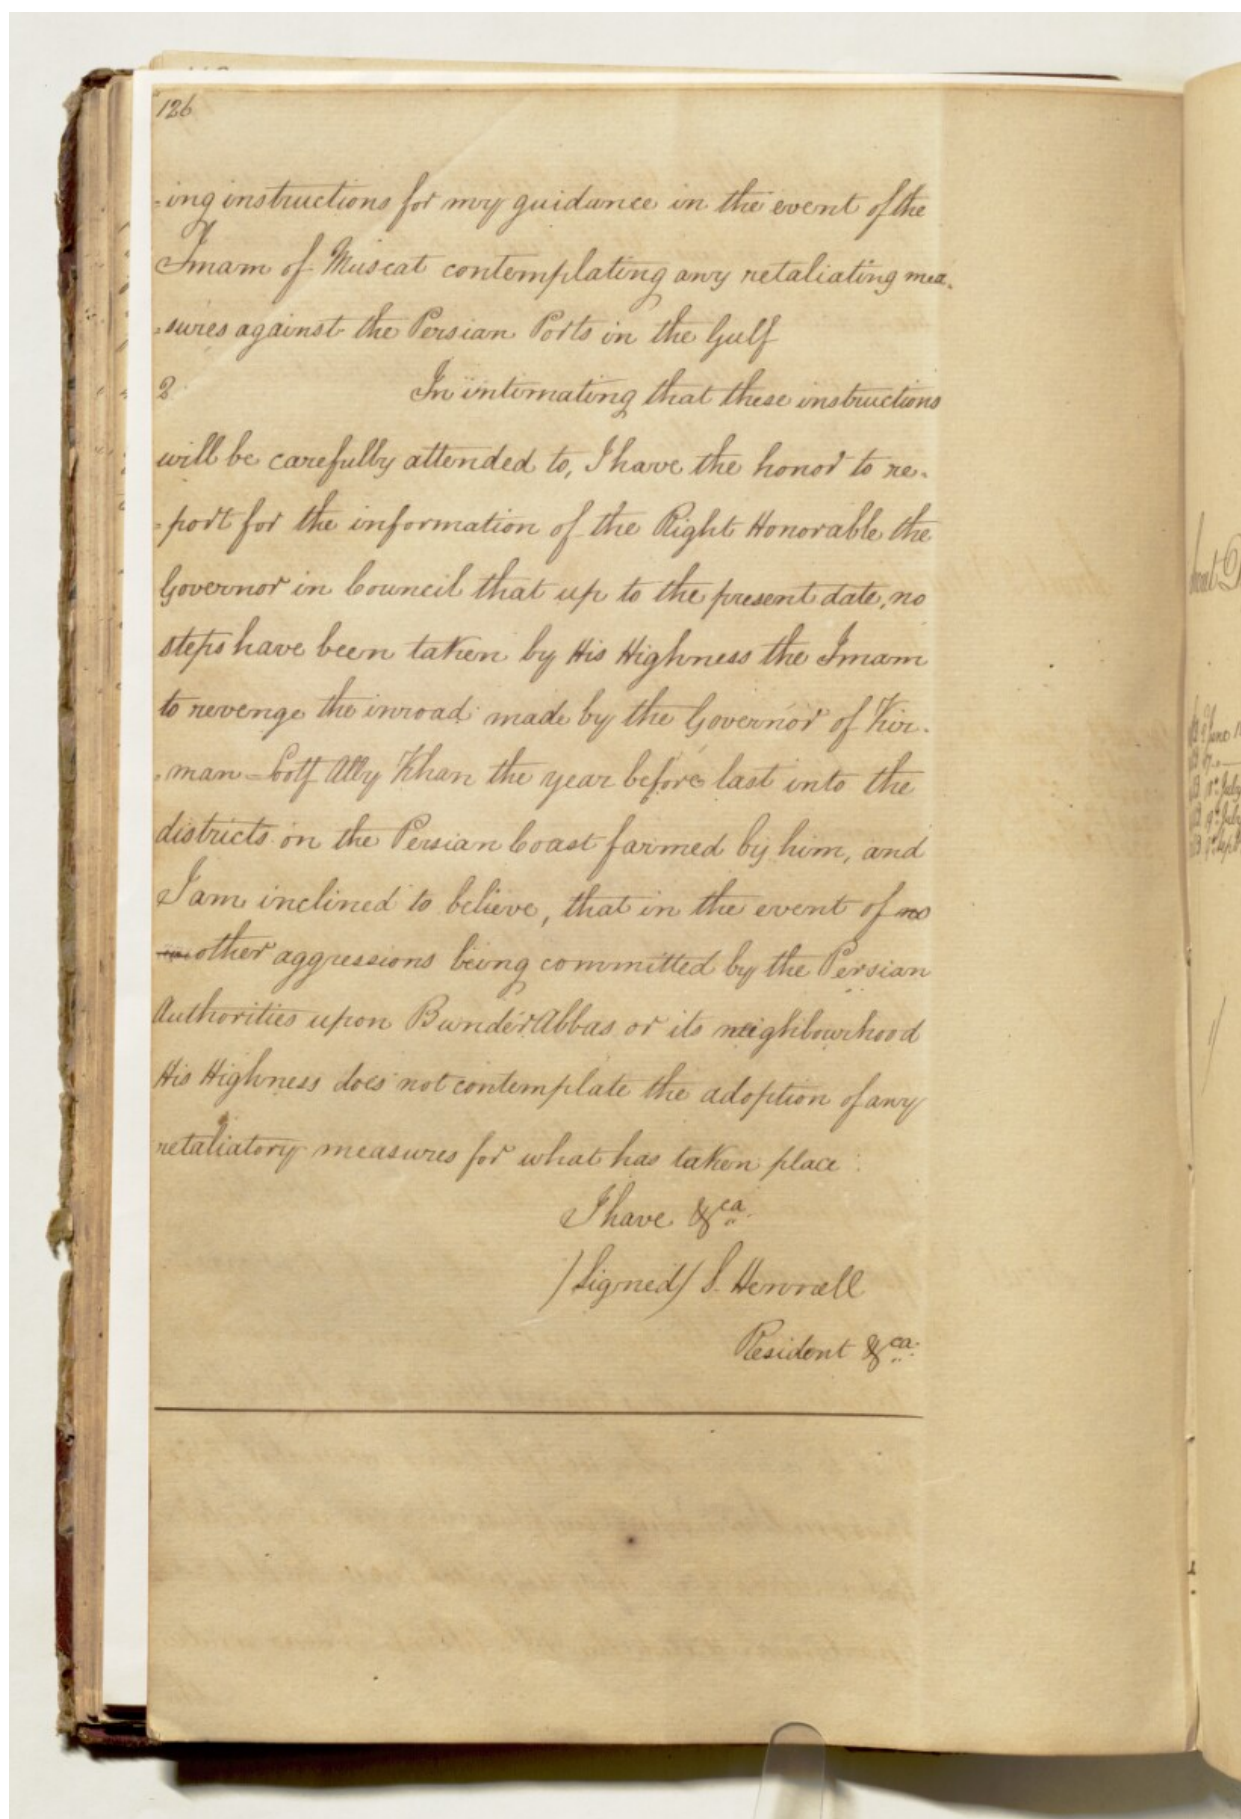 126
-ing instructions for my guidance in the event of the
Imam of Muscat contemplating any retaliating mea-
-sures against the Persian Ports in the Gulf
2 In intimating that these instructions
will be carefully attended to, I have the honor to re-
-port for the information of the Right Honorable the
Governor in Council that up to the present date, no
steps have been taken by His Highness the Imam
to revenge the inroad made by the Governor of Kir-
-man - Lootf Ally Khan the year before last into the
districts on the Persian Coast farmed by him, and
I am inclined to believe, that in the event of no
other aggressions being committed by the Persian
Authorities upon Bunder Abbas or its neighbourhood
His Highness does not contemplate the adoption of any
retaliatory measures for what has taken place.
I have &ca.
/Signed/ S. Hennell
Resident &ca.